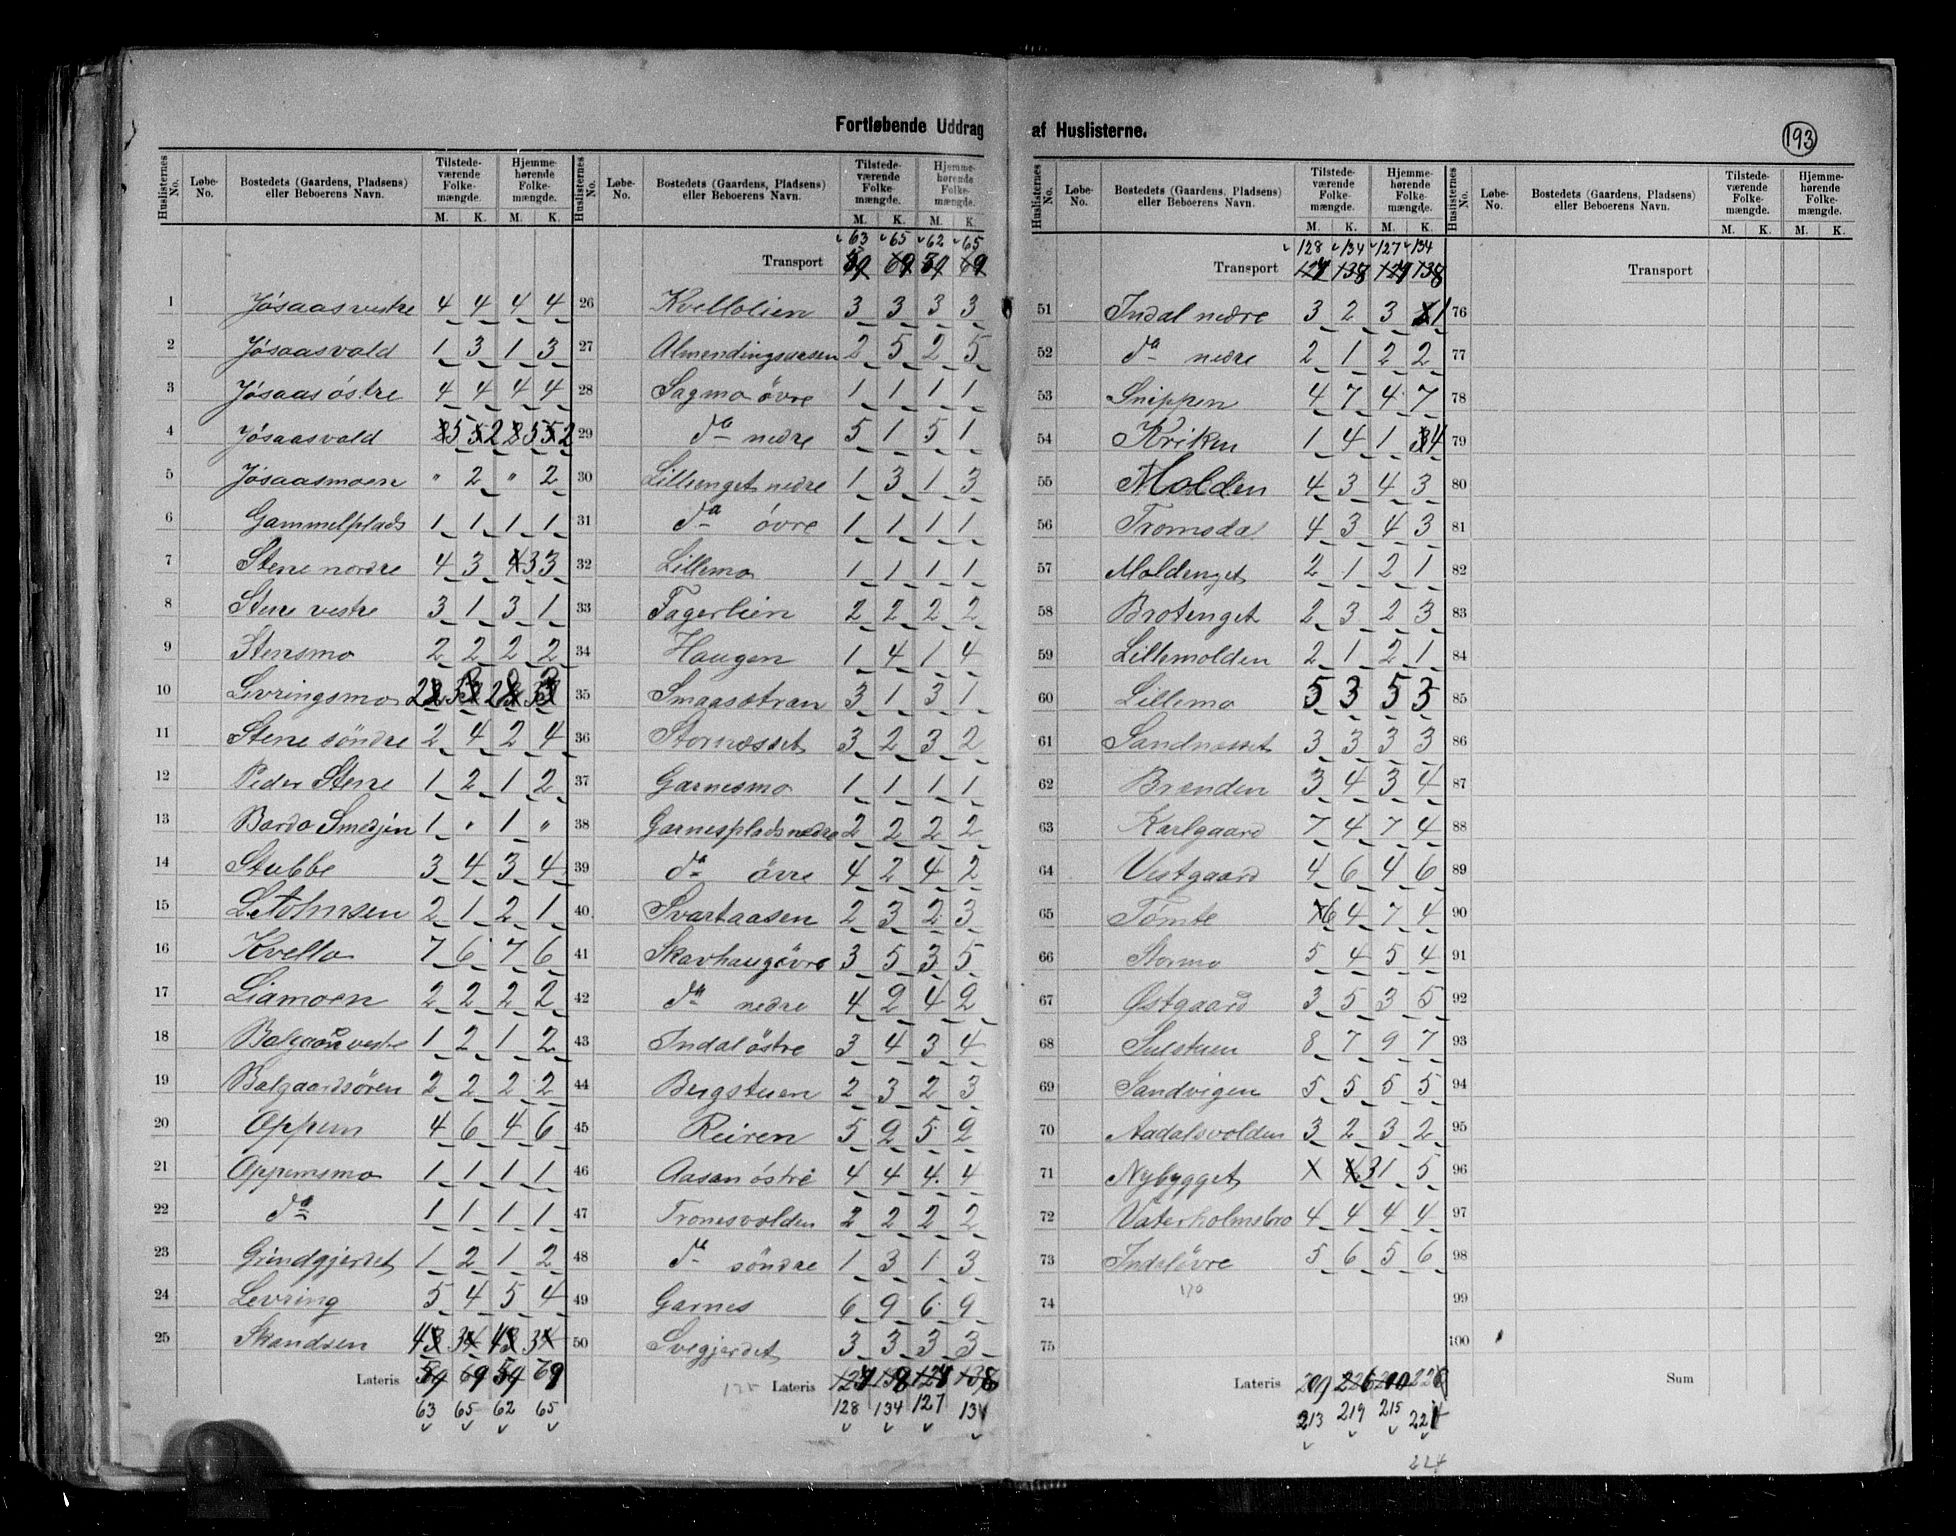 Fortløbende Uddrag af Huslisterne.
193
Huslisternes No. Løbe-No. Bostedets (Gaardens, Pladsens) eller Beboerens Navn. Tilstedeværende Folkemængde. M. K. Hjemmehørende Folkemængde. M. K.
1 Jøsaas vestre 4 4 4 4
2 Jøsaasvald 1 3 1 3
3 Jøsaas östre 4 4 4 4
4 Jøsaasvald 5 2 5 2
5 Jøsaasmoen " 2 " 2
6 Gammelplads 1 1 1 1
7 Stene nordre 4 3 3 3
8 Stene vestre 3 1 3 1
9 Stensmo 2 2 2 2
10 Levringsmo 2 3 2 3
11 Stene söndre 2 4 2 4
12 Peder Stene 1 2 1 2
13 Bardo Smedjen 1 " 1 "
14 Stubbe 3 4 3 4
15 2 1 2 1
16 Kvello 7 6 7 6
17 Liamoen 2 2 2 2
18 vestre 1 2 1 2
19 Balgaardsören 2 2 2 2
20 Oppem 4 6 4 6
21 Oppemsmo 1 1 1 1
22 do 1 1 1 1
23 Grindgjerdet 1 2 1 2
24 Levring 5 4 5 4
25 Skandsen 4 3 4 3
Lateris 59 69 59 69
63 65 62 65
Huslisternes No. Løbe-No. Bostedets (Gaardens, Pladsens) eller Beboerens Navn. Tilstedeværende Folkemængde. M. K. Hjemmehørende Folkemængde. M. K.
63 65 62 65
Transport 59 69 59 69
26 Kvellolien 3 3 3 3
27 Almendingsaasen 2 5 2 5
28 Sagmo övre 1 1 1 1
29 do nedre 5 1 5 1
30 Lillenget nedre 1 3 1 3
31 do övre 1 1 1 1
32 Lillemo 1 1 1 1
33 Fagerlien 2 2 2 2
34 Haugen 1 4 1 4
35 Smaasetran 3 1 3 1
36 Stornesset 3 2 3 2
37 Garnesmo 1 1 1 1
38 Garnesplads nedre 2 2 2 2
39 do övre 4 2 4 2
40 Svartaasen 2 3 2 3
41 Skavhaug övre 3 5 3 5
42 do nedre 4 2 4 2
43 Indal östre 3 4 3 4
44 Bergstuen 2 3 2 3
45 Reiren 5 2 5 2
46 Aasan östre 4 4 4 4
47 Tronesvolden 2 2 2 2
48 do söndre 1 3 1 3
49 Garnes 6 9 6 9
50 Svegjerdet 3 3 3 3
Lateris 124 138 124 138
128 134 127 134
Huslisternes No. Løbe-No. Bostedets (Gaardens, Pladsens) eller Beboerens Navn. Tilstedeværende Folkemængde. M. K. Hjemmehørende Folkemængde. M. K.
128 134 127 134
Transport 124 138 124 138
51 Indal nedre 3 2 3 1
52 do nedre 2 1 2 2
53 Snippen 4 7 4 7
54 Kriken 1 4 1 4
55 Molden 4 3 4 3
56 Tromsdal 4 3 4 3
57 Moldenget 2 1 2 1
58 Brotenget 2 3 2 3
59 Lillemolden 2 1 2 1
60 Lillemo 5 3 5 3
61 Sandnesset 3 3 3 3
62 Brenden 3 4 3 4
63 Karlgaard 7 4 7 4
64 Vestgaard 4 6 4 6
65 Tömte 6 4 7 4
66 Stormo 5 4 5 4
67 Østgaard 3 5 3 5
68 Sulstuen 8 7 9 7
69 Sandvigen 5 5 5 5
70 Aadalsvolden 3 2 3 2
71 Nybygget 3 1 5
72 Vaterholmsbro 4 4 4 4
73 Indal övre 5 6 5 6
74
75
Lateris 209 226
213 219 215 221
224
Huslisternes No. Løbe-No. Bostedets (Gaardens, Pladsens) eller Beboerens Navn. Tilstedeværende Folkemængde. M. K. Hjemmehørende Folkemængde. M. K.
Transport
76
77
78
79
80
81
82
83
84
85
86
87
88
89
90
91
92
93
94
95
96
97
98
99
100
Sum